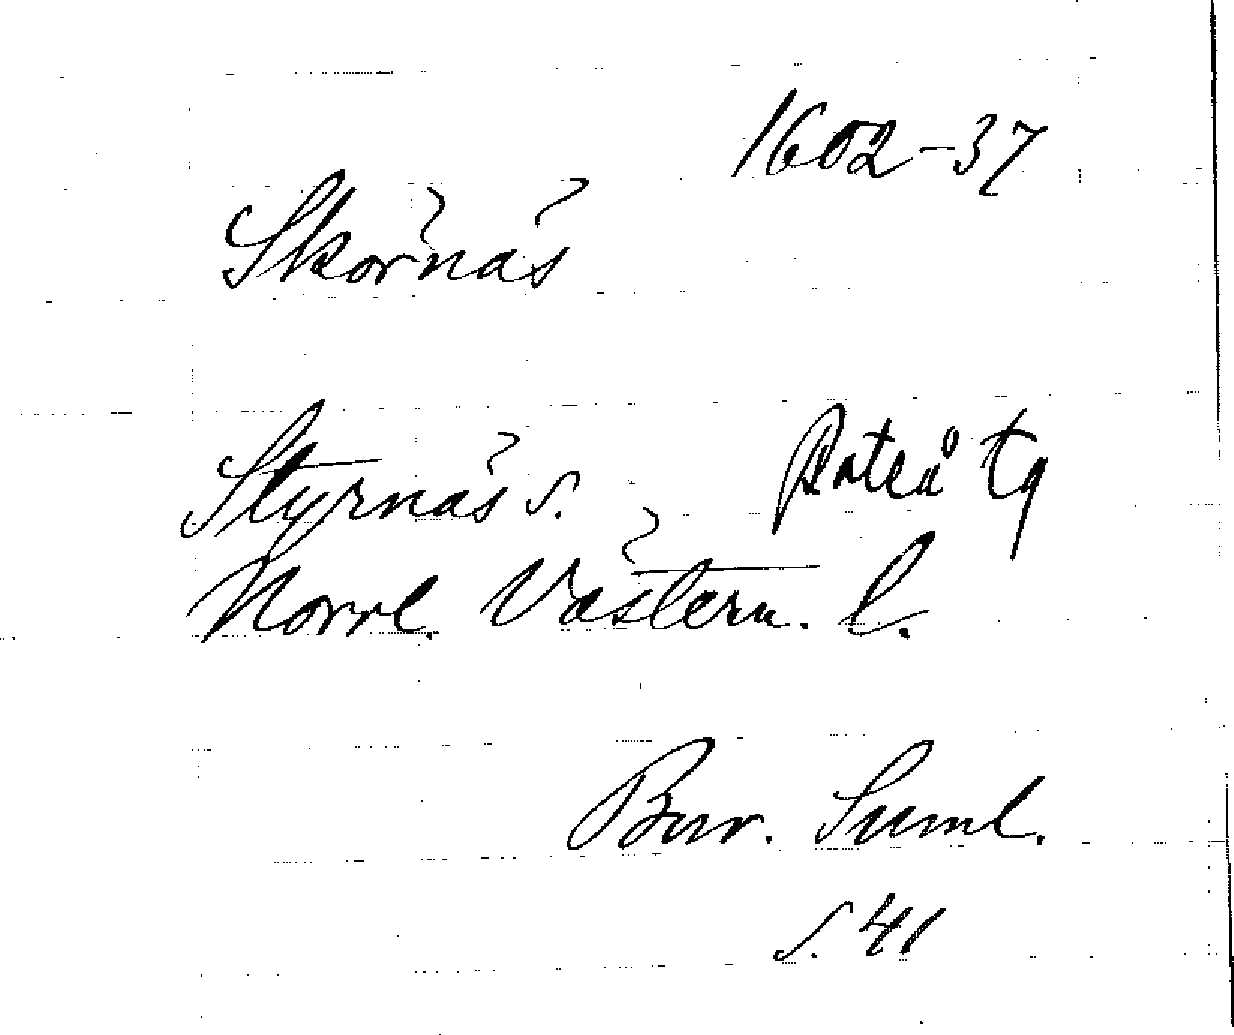 1602-37
Skörnäs
Styrnäs s. Boteå tg
Norrl. Västern. l.
Bur. Suml.
s. 41